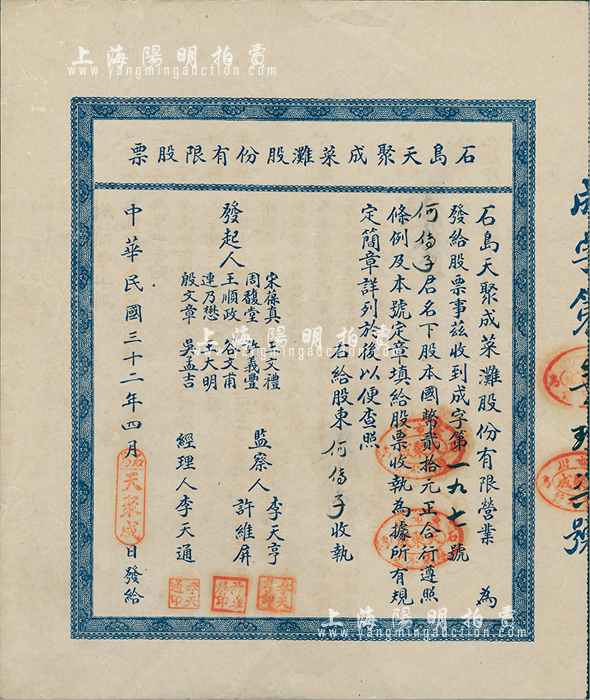 上海陽明拍賣
www.yangmingauction.com
石島天聚成菜灘股份有限股票
石島天聚成菜灘股份有限營業　為
發給股票事茲收到成字第一九七號
何傳子君名下股本國幣貳拾元正合行遵照
條例及本號定章填給股票收執為據所有規
定簡章詳列於後以便查照
右給股東何傳子收執
發起人
宋葆真
周馥堂
王順政
連乃懋
殷文章
文禮
許義豐
谷文甫
天明
吳孟吉
監察人
李天亨
許維屏
經理人李天通
中華民國三十二年四月　日發給
天聚成
李天通印
上海陽明拍賣
www.yangmingauction.com
上海陽明拍賣
www.yangmingauction.com